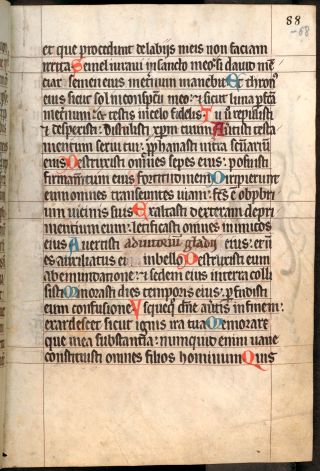 88
68
et que procedunt de labijs meis non faciam
irrita Semel iuraui in sancto meo: si dauid mē
ciar semen eius in eternum manebit Et thron9
eius sicut sol in conspectu meo: et sicut luna pfcā
in eternum: et testis in celo fidelis Tu uo repulisti
et despexisti: distulisti xpm tuum Auertisti testa
mentum serui tui: prophanasti in terra
eius Destruxisti omnes sepes eius: posuisti
firmamentum eius fortitudinem Diripuerunt
eum omnes transeuntes uiam: fcs est obpbri
um uicinis suis Exaltasti dexteram depri
mentium eum: letificasti omnes inimicos
eius Auertisti adiutoriū gladij eius: et nō
es auxiliatus ei in bello Destruxisti eum
ab emundatione: et sedem eius in terra colli
sisti Minorasti dies temporis eius: pfudisti
eum confusione Vsquequo dne auertis in finem:
exardescet sicut ignis ira tua Memorare
que mea substantia: numquid enim uane
constituisti omnes filios hominum Quis